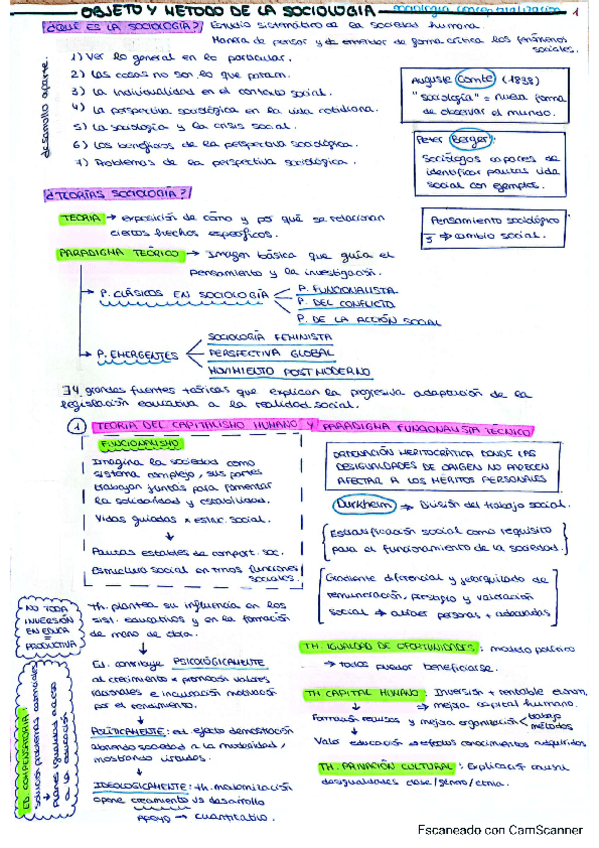 OBJETO Y METODO DE LA SOCIOLOGIA 1
¿QUE ES LA SOCIOLOGÍA? Estudio sistemático de la sociedad humana.
Manera de pensar y de entender de forma crítica los fenómenos
sociales.
desarrollo aparte.
1) Ver lo general en lo particular.
2) Las cosas no son lo que paran.
3) La individualidad en el contexto social.
4) La perspectiva sociológica en la vida cotidiana.
5) La sociología y la crisis social.
6) Los beneficios de la perspectiva sociológica.
7) Problemas de la perspectiva sociológica.
Auguste Comte (1838)
"sociología" = nueva forma
de observar el mundo.
Peter Berger:
Sociólogos capaces de
identificar pautas vida
social con ejemplos.
Pensamiento sociológico
→ cambio social.
¿TEORÍAS SOCIOLOGÍA?
TEORIA → exposición de cómo y por qué se relacionan
ciertos hechos específicos.
PARADIGMA TEÓRICO → Imagen básica que guía el
pensamiento y la investigación.
→ P. CLÁSICOS EN SOCIOLOGÍA
P. FUNCIONALISTA
P. DEL CONFLICTO
P. DE LA ACCIÓN SOCIAL
→ P. EMERGENTES
SOCIOLOGÍA FEMINISTA
PERSPECTIVA GLOBAL
MOVIMIENTO POSTMODERNO
∃ 4 grandes fuentes teóricas que explican la progresiva adaptación de la
legislación educativa a la realidad social.
1 TEORIA DEL CAPITALISMO HUMANO Y PARADIGMA FUNCIONALISTA TÉCNICO
FUNCIONALISMO
Imagina la sociedad como
sistema complejo, sus partes
trabajan juntas para fomentar
la solidaridad y estabilidad.
Vidas guiadas x estruc. social.
↓
Pautas estables de comport. soc.
Estructura social en tmos funciones
sociales.
ORDENACIÓN MERITOCRÁTICA DONDE LAS
DESIGUALDADES DE ORIGEN NO PARECEN
AFECTAR A LOS MÉRITOS PERSONALES
Durkheim → División del trabajo social.
Estratificación social como requisito
para el funcionamiento de la sociedad.
Gradiente diferencial y jerarquizado de
remuneración, prestigio y valoración
social → atraer personas + adecuadas
NO TODA
INVERSIÓN
EN EDUCA
=
PRODUCTIVA
ED. COMPENSATORIA:
Th. plantea su influencia en los
sist. educativos y en la formación
de mano de obra.
↓
Ed. contribuye PSICOLÓGICAMENTE
al crecimiento = promoción valores
racionales e incursión motivación
por el rendimiento.
↓
POLÍTICAMENTE: el efecto demostración
abriendo sociedad a la modernidad,
mostrando virtudes.
↓
IDEOLÓGICAMENTE: th. modernización
opone crecimiento vs desarrollo
Apoyo → cuantitativo.
TH. IGUALDAD DE OPORTUNIDADES: modelo político
→ todos puedan beneficiarse.
TH CAPITAL HUMANO: Inversión + rentable econom.
→ mejora capital humano.
Formación equipos y mejora organización trabajo
métodos
Valor educación → efectos conocimientos adquiridos.
TH. PRIVACIÓN CULTURAL: Explicación
desigualdades clase/género/etnia.
Escaneado con CamScanner